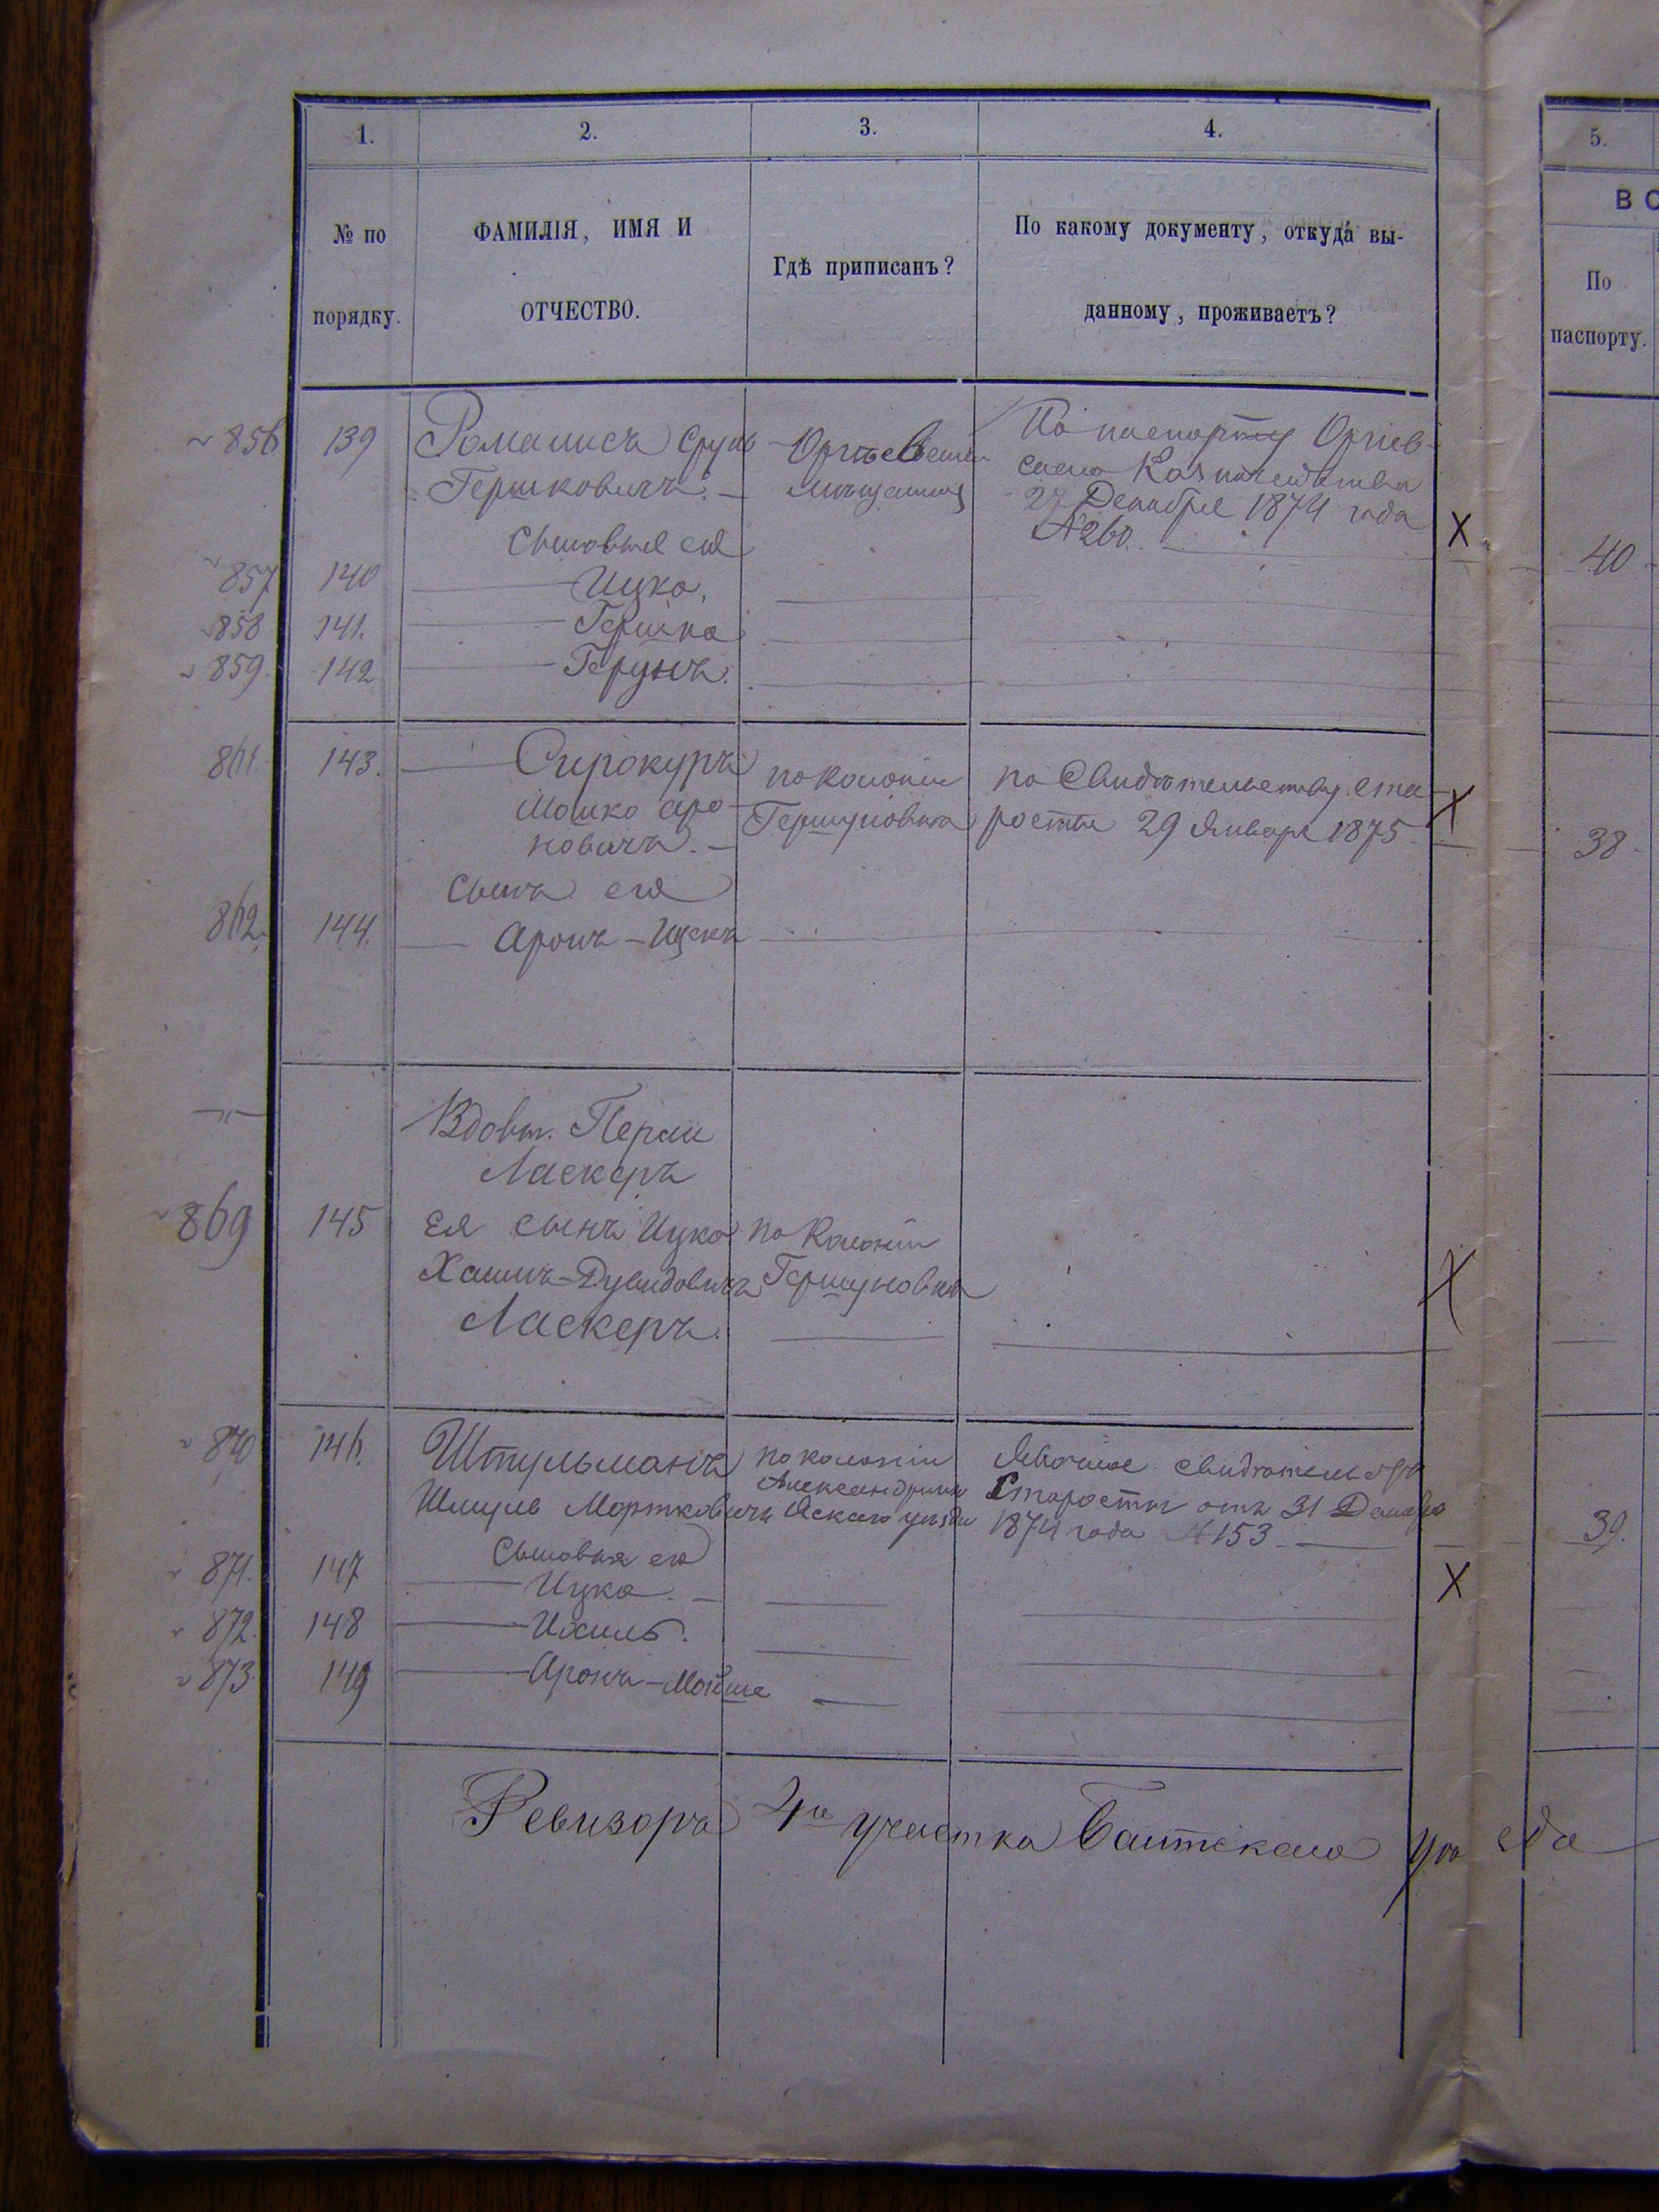 1. 2. 3. 4. 5.
№ по порядку.
ФАМИЛІЯ, ИМЯ И
ОТЧЕСТВО.
Гдѣ приписанъ?
По какому документу, откуда вы-
данному, проживаетъ?
ВО
По
паспорту.
856 139 Срулъ
Гершковичъ.
По паспорту Оргѣев-
скаго Казначейства
27 Декабря 1874 года
№ 260.
X 40
Сыновья его
857 140 Ицко,
858 141. Гершко
859. 142
861. 143. Сирокуръ
Мошко Аро-
новичъ.
по колоніи
Гершуновка
по Свидѣтельству ста-
росты 29 Января 1875
X 38
Сынъ его
862. 144. Аронъ-Ицекъ
Вдовы
Ласкеръ
869 145 Ея сынъ Ицко
Хаимъ-Дувидовичъ
Ласкеръ.
по Колоніи
Гершуновка
X
870 146. Штульманъ
Шмуль Мортковичъ
по колоніи
уѣзда
Явочное свидѣтельство
Старосты отъ 31 Декабря
1874 года № 153.
39.
Сыновья его
871. 147 Ицко. X
872. 148 Ихиль.
873. 149 Аронъ-Мойше
Ревизоръ 4го участка Балтскаго уѣзда